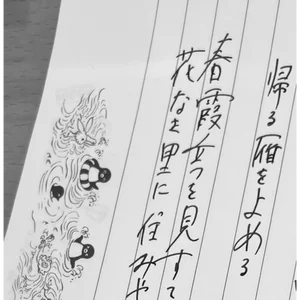 帰る雁をよめる
春霞立つを見すて
花なき里に住みや